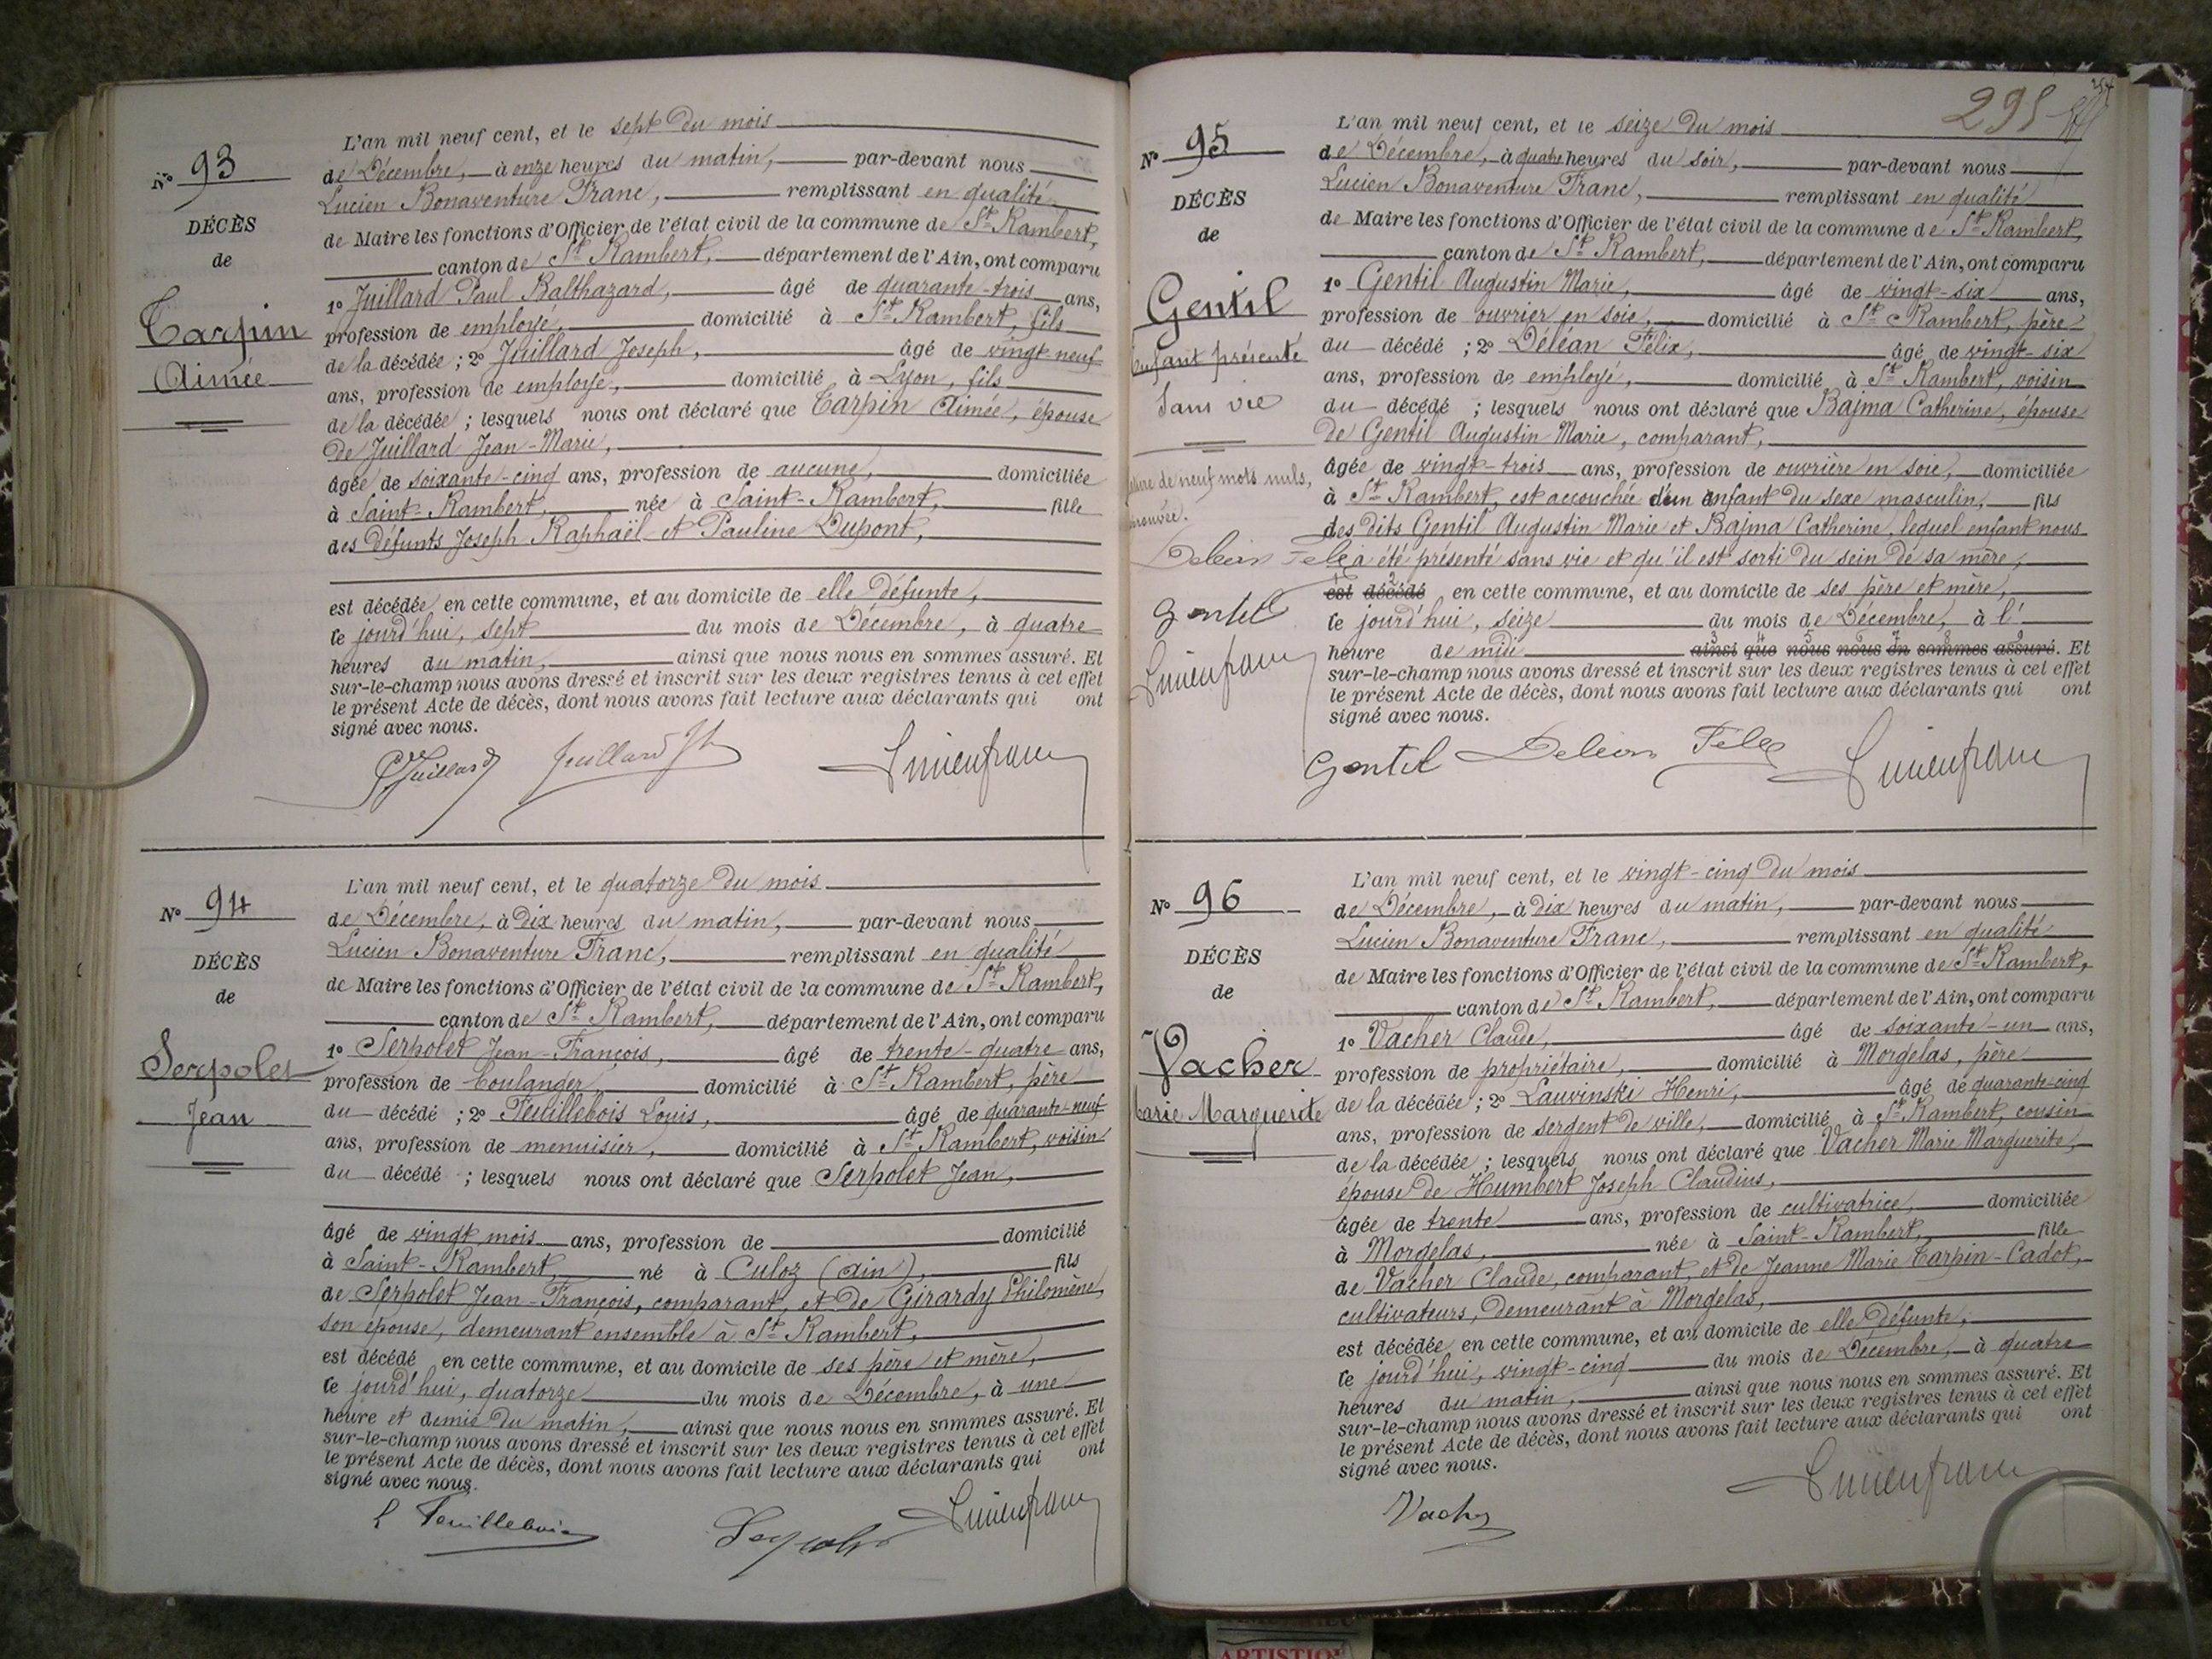 No 93
DÉCÈS
de
Tarpin
Aimée
L'an mil neuf cent, et le sept du mois
de Décembre, à onze heures du matin, par-devant nous
Lucien Bonaventure Franc, remplissant en qualité
de Maire les fonctions d'Officier de l'état civil de la commune de St Rambert,
canton de St Rambert, département de l'Ain, ont comparu
1o Juillard Paul Balthazard, âgé de quarante-trois ans,
profession de employé, domicilié à St Rambert, fils
de la décédée ; 2o Juillard Joseph, âgé de vingt-neuf
ans, profession de employé, domicilié à Lyon, fils
de la décédée ; lesquels nous ont déclaré que Tarpin Aimée, épouse
de Juillard Jean-Marie,
âgée de soixante-cinq ans, profession de aucune, domiciliée
à Saint-Rambert, née à Saint-Rambert, fille
des défunts Joseph Raphaël et Pauline Dupont,
est décédée en cette commune, et au domicile de elle défunte,
le jourd'hui, sept du mois de Décembre, à quatre
heures du matin, ainsi que nous nous en sommes assuré. Et
sur-le-champ nous avons dressé et inscrit sur les deux registres tenus à cet effet
le présent Acte de décès, dont nous avons fait lecture aux déclarants qui ont
signé avec nous.
P Juillard Juillard Jh Lucien franc
No 94
DÉCÈS
de
Serpolet
Jean
L'an mil neuf cent, et le quatorze du mois
de Décembre, à dix heures du matin, par-devant nous
Lucien Bonaventure Franc, remplissant en qualité
de Maire les fonctions d'Officier de l'état civil de la commune de St Rambert,
canton de St Rambert, département de l'Ain, ont comparu
1o Serpolet Jean-François, âgé de trente-quatre ans,
profession de boulanger, domicilié à St Rambert, père
du décédé ; 2o Feuillebois Louis, âgé de quarante-neuf
ans, profession de menuisier, domicilié à St Rambert, voisin
du décédé ; lesquels nous ont déclaré que Serpolet Jean,
âgé de vingt mois ans, profession de domicilié
à Saint-Rambert, né à Culoz (Ain), fils
de Serpolet Jean-François, comparant, et de Girardy Philomène,
son épouse, demeurant ensemble à St Rambert,
est décédé en cette commune, et au domicile de ses père et mère,
le jourd'hui, quatorze du mois de Décembre, à une
heure et demie du matin, ainsi que nous nous en sommes assuré. Et
sur-le-champ nous avons dressé et inscrit sur les deux registres tenus à cet effet
le présent Acte de décès, dont nous avons fait lecture aux déclarants qui ont
signé avec nous.
L Feuillebois Serpolet Lucien franc
295
No 95
DÉCÈS
de
Gentil
Enfant présenté
Sans vie
de neuf mots nuls,
Deléan Félix
Gentil
Lucien franc
L'an mil neuf cent, et le seize du mois
de Décembre, à quatre heures du soir, par-devant nous
Lucien Bonaventure Franc, remplissant en qualité
de Maire les fonctions d'Officier de l'état civil de la commune de St Rambert,
canton de St Rambert, département de l'Ain, ont comparu
1o Gentil Augustin Marie, âgé de vingt-six ans,
profession de ouvrier en soie, domicilié à St Rambert, père
du décédé ; 2o Déléan Félix, âgé de vingt-six
ans, profession de employé, domicilié à St Rambert, voisin
du décédé ; lesquels nous ont déclaré que Bajma Catherine, épouse
de Gentil Augustin Marie, comparant,
âgée de vingt-trois ans, profession de ouvrière en soie, domiciliée
à St Rambert, est accouchée d'un enfant du sexe masculin, fils
des dits Gentil Augustin Marie et Bajma Catherine, lequel enfant nous
a été présenté sans vie et qu'il est sorti du sein de sa mère,
est décédé en cette commune, et au domicile de ses père et mère,
le jourd'hui, seize du mois de Décembre, à l'
heure de midi ainsi que nous nous en sommes assuré. Et
sur-le-champ nous avons dressé et inscrit sur les deux registres tenus à cet effet
le présent Acte de décès, dont nous avons fait lecture aux déclarants qui ont
signé avec nous.
Gentil Deléan Félix Lucien franc
No 96
DÉCÈS
de
Vacher
Marie Marguerite
L'an mil neuf cent, et le vingt-cinq du mois
de Décembre, à dix heures du matin, par-devant nous
Lucien Bonaventure Franc, remplissant en qualité
de Maire les fonctions d'Officier de l'état civil de la commune de St Rambert,
canton de St Rambert, département de l'Ain, ont comparu
1o Vacher Claude, âgé de soixante-un ans,
profession de propriétaire, domicilié à Morgelas, père
de la décédée ; 2o Lauvinski Henri, âgé de quarante-cinq
ans, profession de sergent de ville, domicilié à St Rambert, cousin
de la décédée ; lesquels nous ont déclaré que Vacher Marie Marguerite,
épouse de Humbert Joseph Claudius,
âgée de trente ans, profession de cultivatrice, domiciliée
à Morgelas, née à Saint-Rambert, fille
de Vacher Claude, comparant, et de Jeanne Marie Tarpin-Cadot,
cultivateurs, demeurant à Morgelas,
est décédée en cette commune, et au domicile de elle défunte,
le jourd'hui, vingt-cinq du mois de Décembre, à quatre
heures du matin, ainsi que nous nous en sommes assuré. Et
sur-le-champ nous avons dressé et inscrit sur les deux registres tenus à cet effet
le présent Acte de décès, dont nous avons fait lecture aux déclarants qui ont
signé avec nous.
Vacher Lucien franc